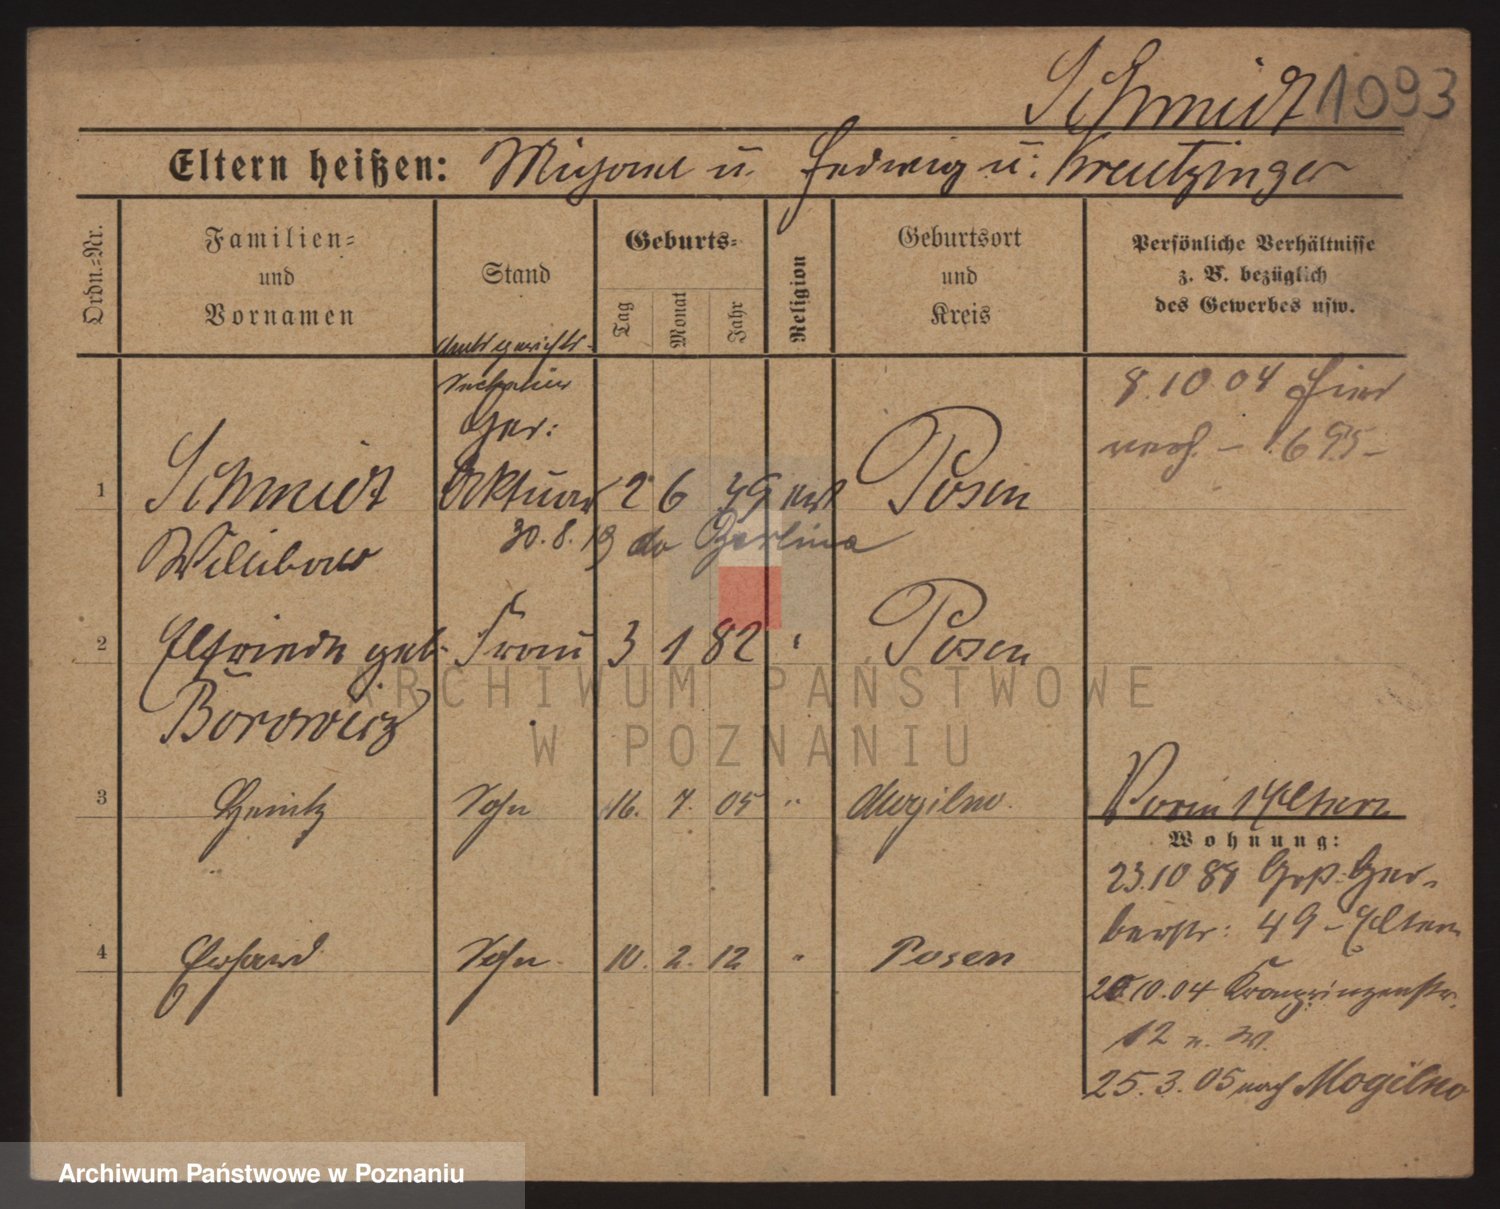 Schmidt 1093
Eltern heißen: Michael u. Hedwig u: Kreutzinger
Ordn.-Nr.
Familien-
und
Vornamen
Stand
Geburts-
Tag
Monat
Jahr
Religion
Geburtsort
und
Kreis
Persönliche Verhältnisse
z. B. bezüglich
des Gewerbes usw.
Amtsgerichts-
Sekretär
8.10 04 hier
verh. - 1695 -
Ger:
1 Schmidt Aktuar 2 6 79 Posen
Willibald 30. 8. 19 do
2 Elfriede geb. Frau 3 1 82 " Posen
Borowicz
3 Heintz Sohn 16. 7. 05 " Mogilno.
Vorm 1 Eltern
Wohnung:
23.10 88 Groß. Ger-
berstr: 49 - Eltern
4 Erhard Sohn 10. 2. 12 " Posen
20 10.04 Kronprinzenstr.
12 n. W.
25.3.05 nach Mogilno
ARCHIWUM PAŃSTWOWE
W POZNANIU
Archiwum Państwowe w Poznaniu